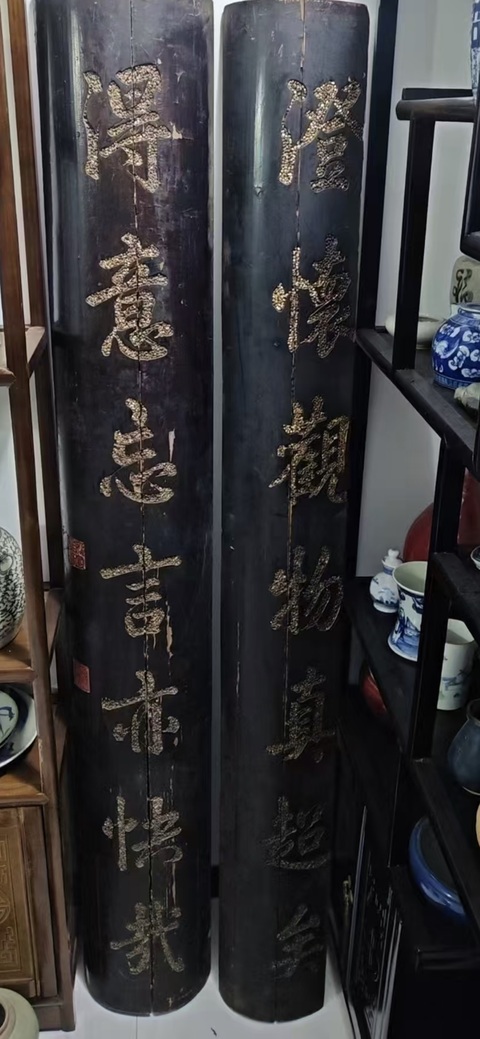 澄懷觀物真超矣
得意忘言亦快哉